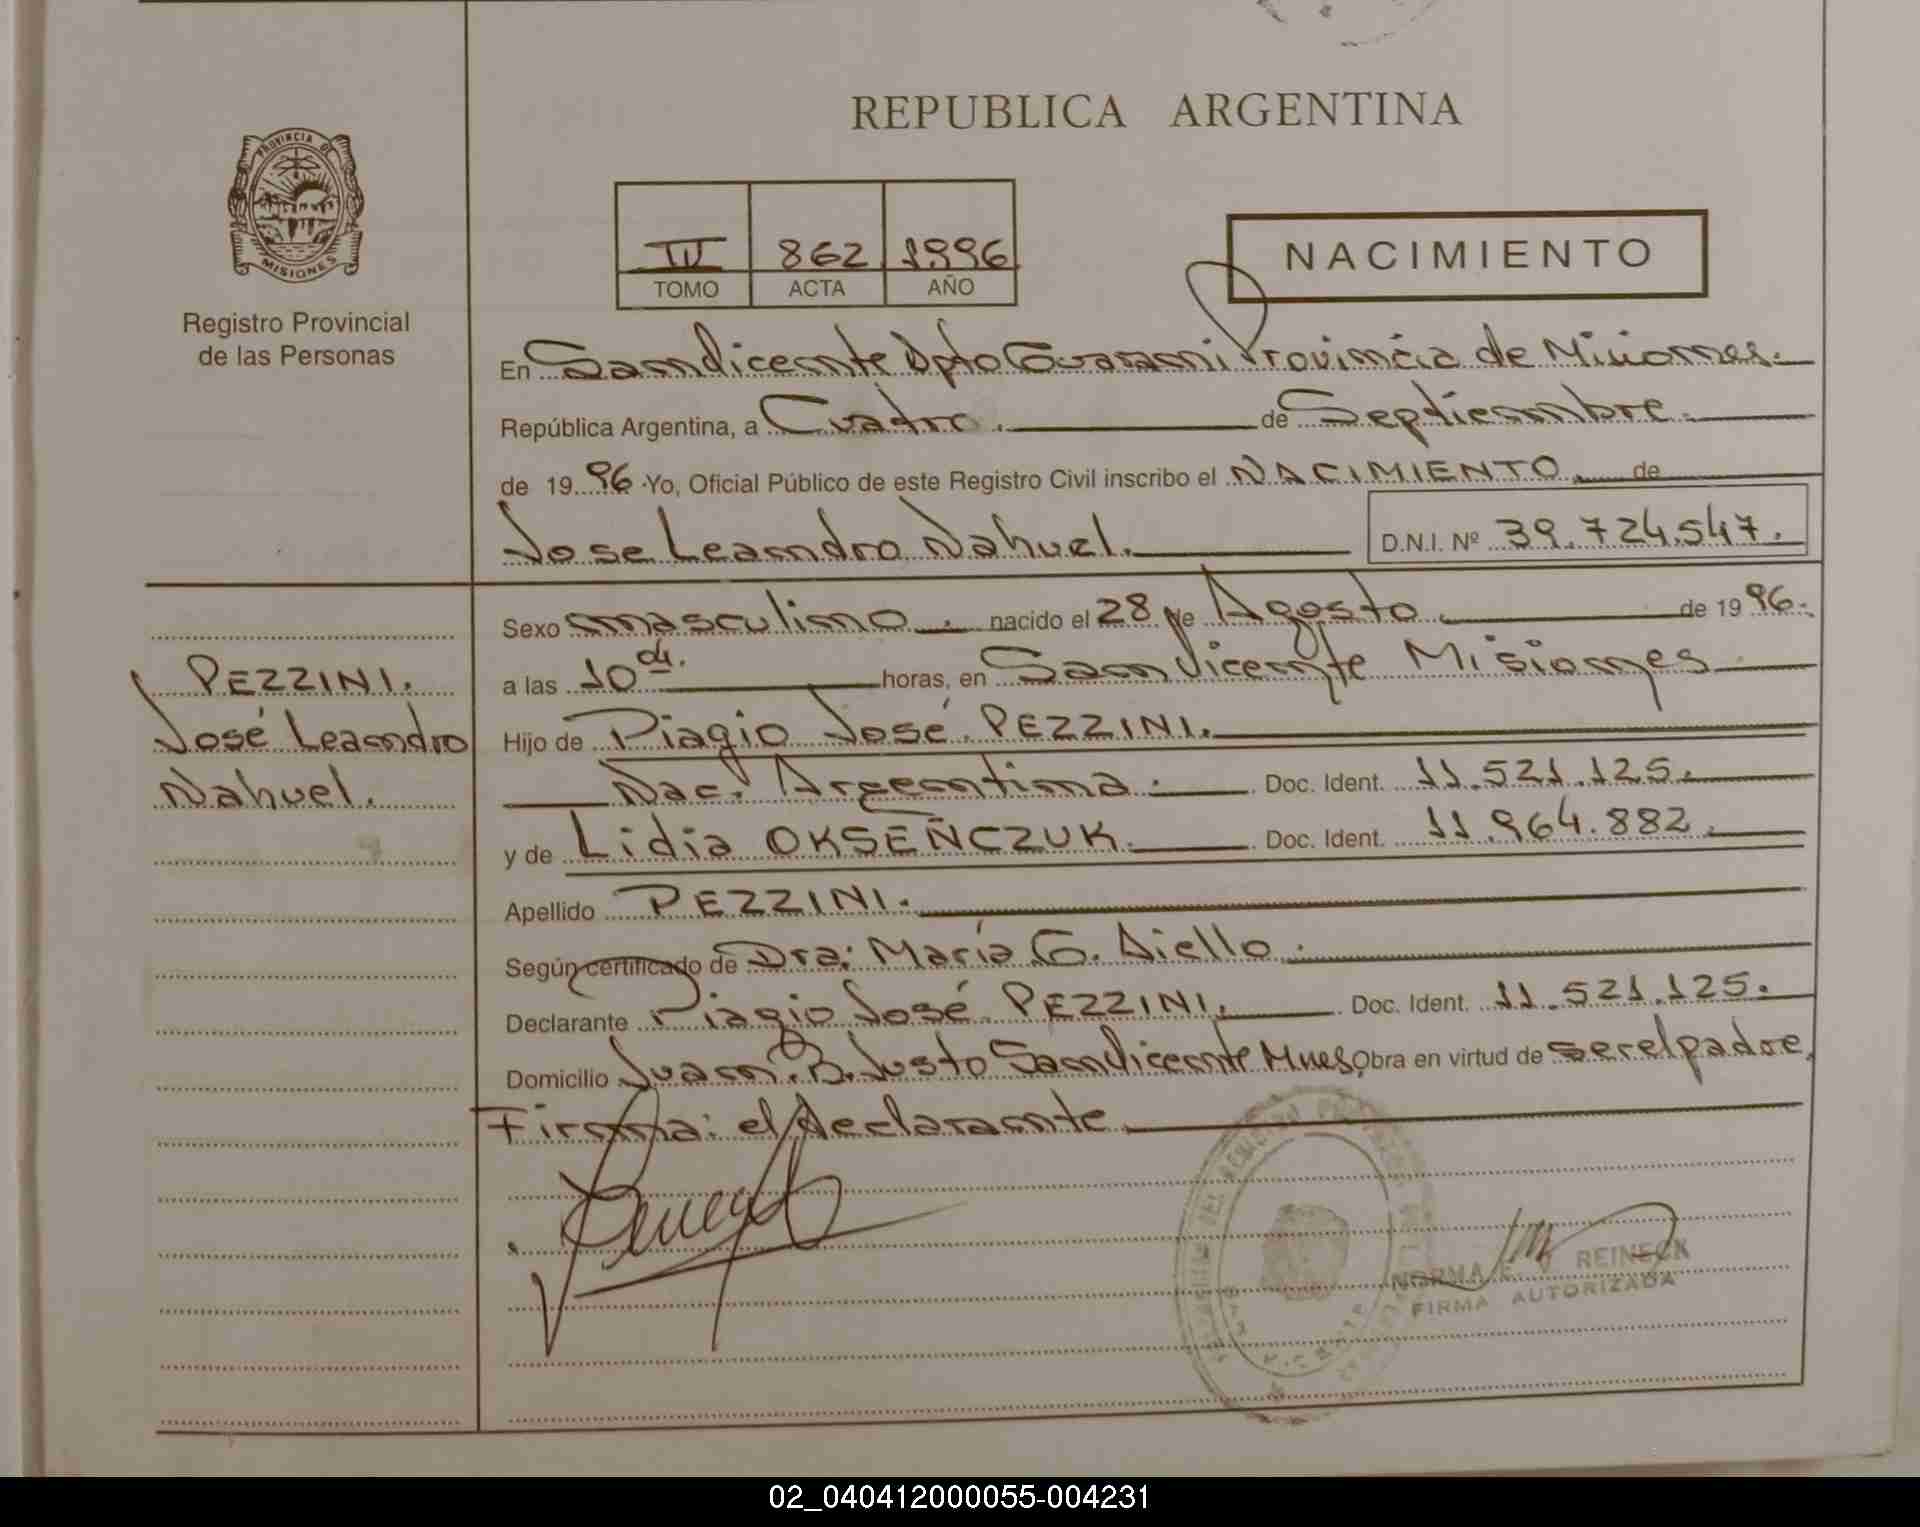 REPUBLICA ARGENTINA
PROVINCIA DE
MISIONES
Registro Provincial
de las Personas
III 862 1996
TOMO ACTA AÑO
NACIMIENTO
En San Vicente Dpto Guarani Provincia de Misiones.
República Argentina, a Cuatro. de Septiembre.
de 19 96 Yo, Oficial Público de este Registro Civil inscribo el NACIMIENTO de
Jose Leandro Nahuel. D.N.I. Nº 39.724.547.
PEZZINI.
José Leandro
Nahuel.
Sexo masculino. nacido el 28 de Agosto. de 19 96.
a las 10 horas, en San Vicente Misiones
Hijo de Piagio José PEZZINI.
Nac. Argentina. Doc. Ident. 11.521.125.
y de Lidia OKSEÑCZUK. Doc. Ident. 11.964.882.
Apellido PEZZINI.
Según certificado de Dra: María G. Aiello.
Declarante Piagio José PEZZINI. Doc. Ident. 11.521.125.
Domicilio Juan B. Justo San Vicente Mnes. Obra en virtud de ser el padre,
Firma: el declarante
NORMA E. REINECK
FIRMA AUTORIZADA
02_040412000055-004231